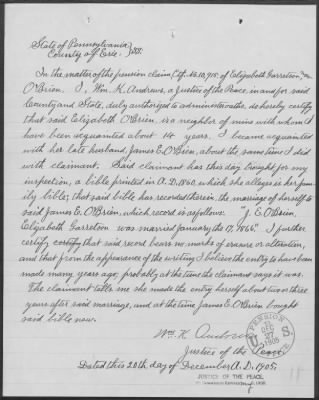 State of Pennsylvania,
County of Erie. } SS:
In the matter of the pension claim, Ctf. No. 10,915, of Elizabeth Garretson,
O'Brien. I, Wm. K. Andrews, a Justice of the Peace, in and for said
County and State, duly authorized to administer oaths, do hereby certify
that said Elizabeth O'Brien is a neighbor of mine with whom I
have been acquainted about 14 years. I became acquainted
with her late husband, James E. O'Brien, about the same time I did
with claimant. Said claimant has this day brought for my
inspection, a bible printed in A.D. 1860, which she alleges is her fam-
ily bible; that said bible has recorded therein, the marriage of herself to
said James E. O'Brien, which record is as follows: "J. E. O'Brien
Elizabeth Garretson was married January the 17, 1866." I further
certify certify that said record bears no marks of erasure or alteration,
and that from the appearance of the writing I believe the entry to have been
made many years ago, probably at the time the claimant says it was.
The claimant tells me she made the entry herself about two or three
years after said marriage, and at the time James E. O'Brien bought
said bible new.
Wm. K. Andrews
Justice of the Peace.
Dated this 20th day of December A.D. 1905.
JUSTICE OF THE PEACE,
PENSION
DEC
27
1905
OFFICE
U S